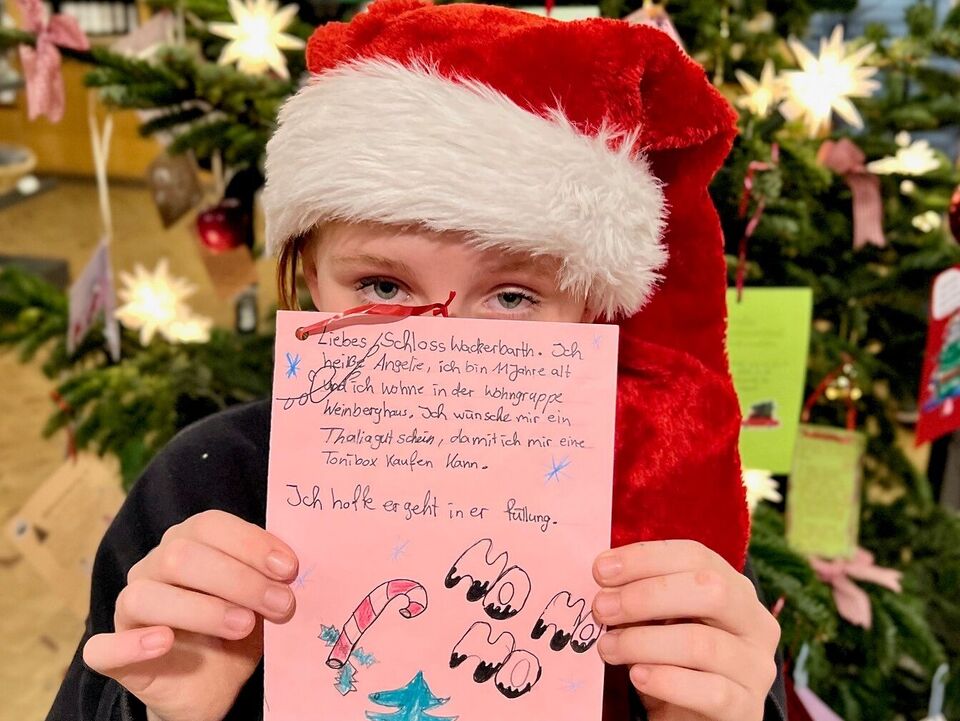 Liebes Schloss Wackerbarth. Ich
heiße Angelie, ich bin 11 Jahre alt
und ich wohne in der Wohngrappe
Weinberghaus. Ich wünsche mir ein
Thaliagutschein, damit ich mir eine
Tonibox kaufen kann.
Ich hofke er geht in er füllung.
HO
HO
HO